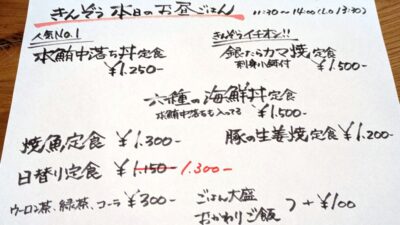 きんぞう 本日のお昼ごはん
11:30～14:00(LO 13:30)
人気No.1
本鮪中落ち丼定食
¥1.250-
きんぞうイチオシ!!
銀だらカマ焼定食
刺身小鉢付 ¥1.500-
六種の海鮮丼定食
本鮪中落ちも入ってる ¥1.500-
焼魚定食 ¥1.300-
豚の生姜焼定食 ¥1.200-
日替り定食 ¥1.150- 1.300-
ウーロン茶、緑茶、コーラ ¥300-
ごはん大盛
おかわりご飯
+¥100